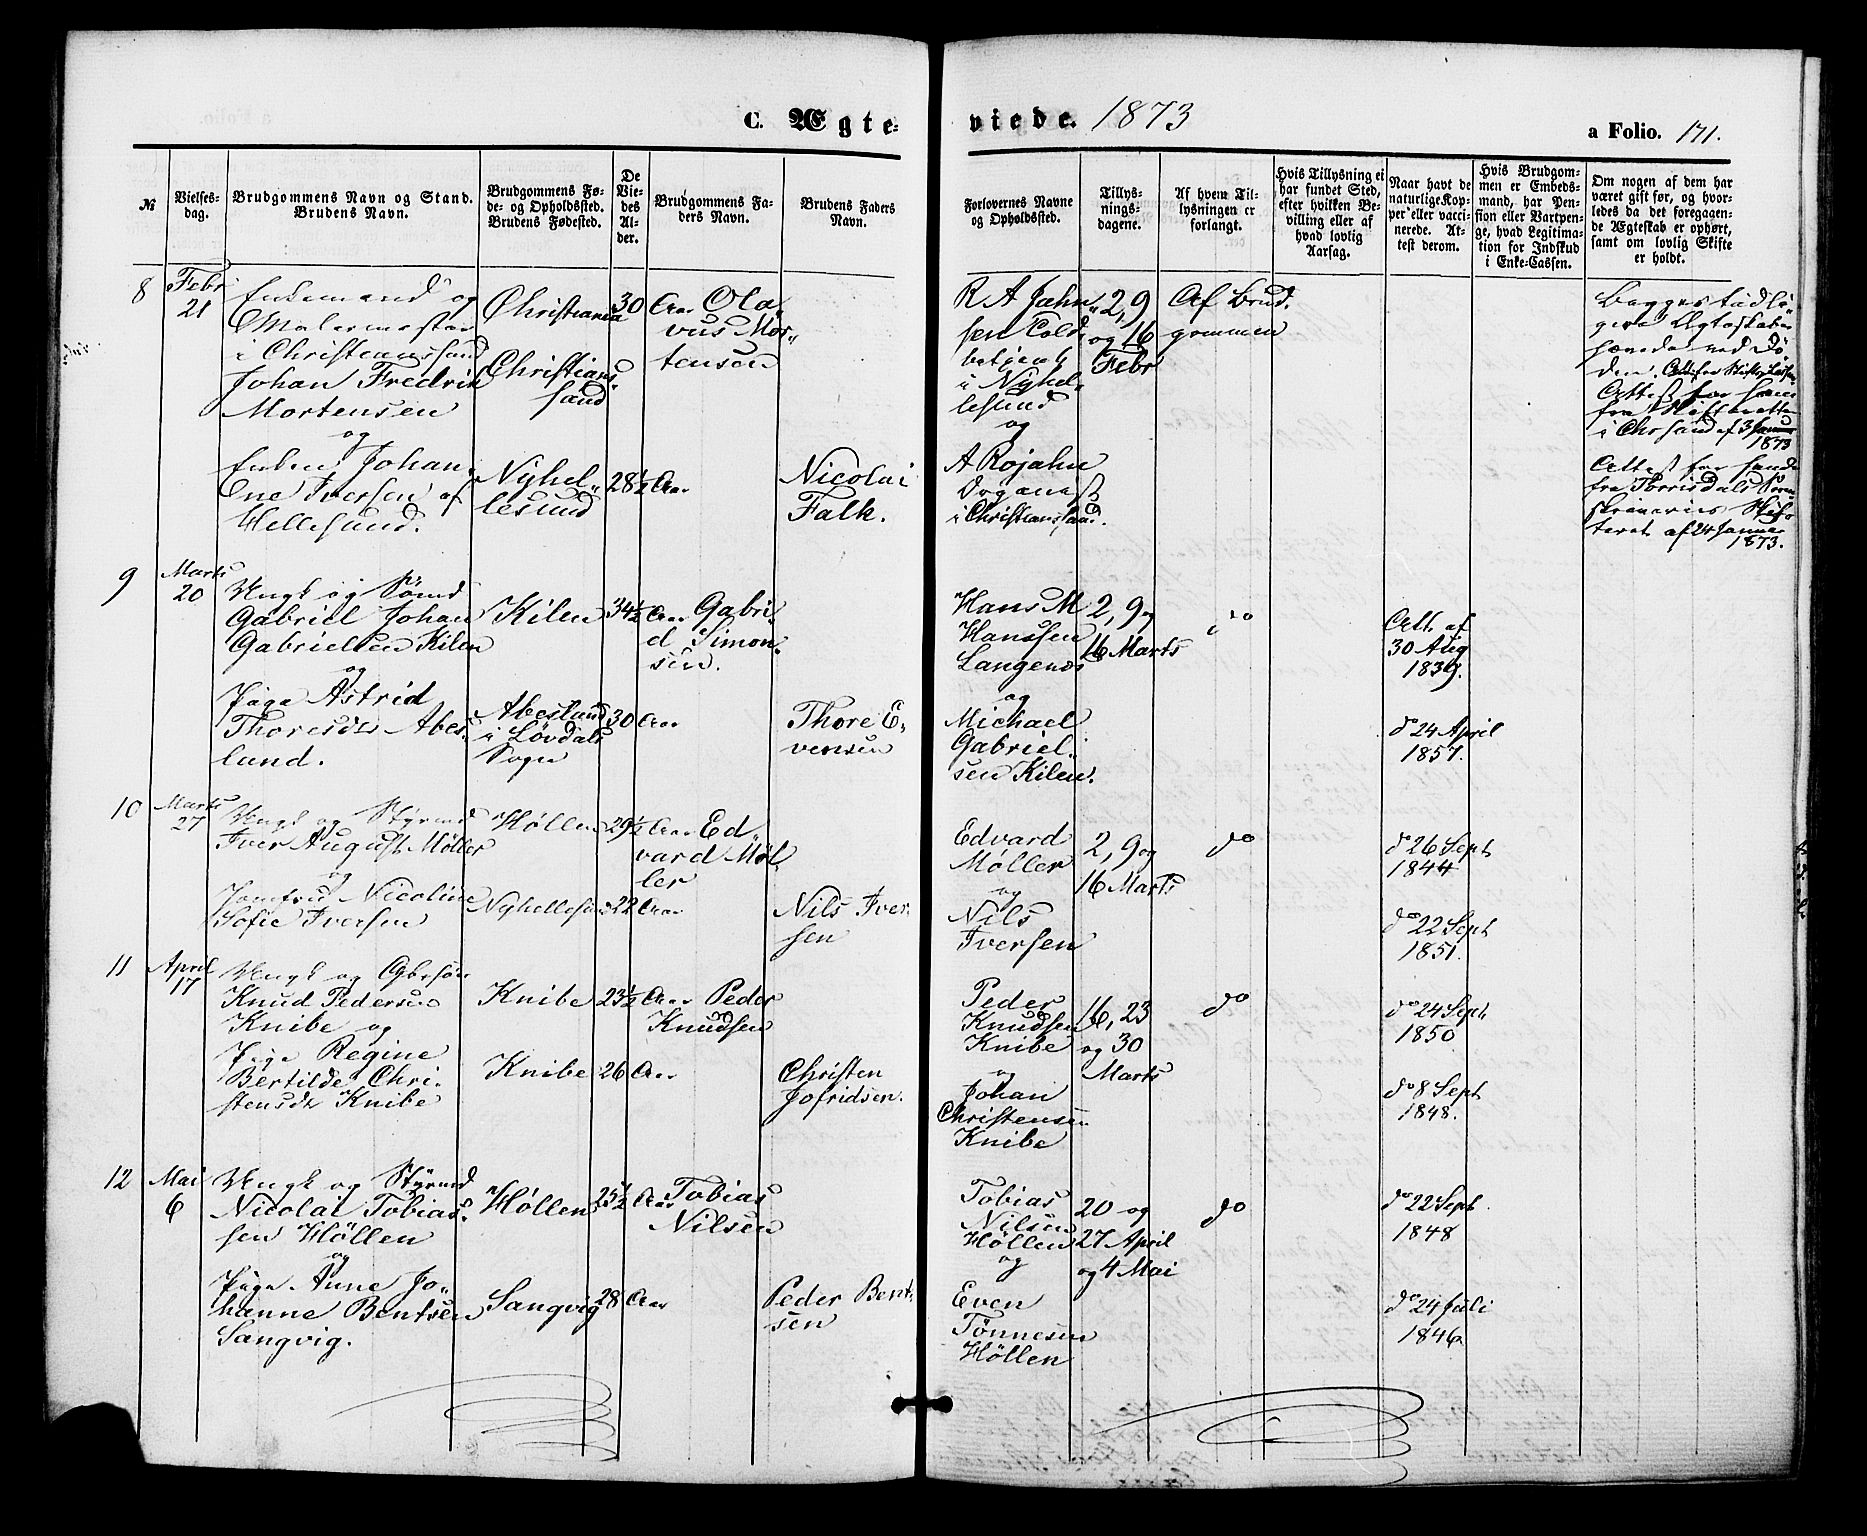 C. Ægte-
viede. 1873
a Folio. 171.
№
Vielses-
dag.
Brudgommens Navn og Stand.
Brudens Navn.
Brudgommens Fø-
de- og Opholdssted.
Brudens Fødested.
De
Vie-
des
Al-
der.
Brudgommens Fa-
ders Navn.
Brudens Faders
Navn.
Forlovernes Navne
og Opholdssted.
Tillys-
nings-
dagene.
Af hvem Til-
lysningen er
forlangt.
Hvis Tillysning ei
har fundet Sted,
efter hvilken Be-
villing eller af
hvad lovlig
Aarsag.
Naar havt de
naturlige Kop-
per eller vacci-
nerede. At-
test derom.
Hvis Brudgom-
men er Embeds-
mand, har Pen-
sion eller Vartpen-
ge, hvad Legitima-
tion for Indskud
i Enke-Cassen.
Om nogen af dem har
været gift før, og hvor-
ledes da det foregaaen-
de Ægteskab er ophørt,
samt om lovlig Skifte
er holdt.
8
Febr
21
Enkemand og
Malermester
i Christianssand
Johan Fredrik
Mortensen
og
Enken Johan-
Ene Iversen af
Hellesund.
Christiania
Christians-
sand
Nyhel-
lesund
30 Aar
28½ Aar
Ola-
vus Mor-
tensen
Nicolai
Falk.
R A Jahn-
sen Told-
betjent
i Nyhel-
lesund
og
A Rojahn
Organist
i Christianssand.
2, 9
og 16
Febr
Af Brud-
gommen
Begges tidli-
gere Ægteskaber
hævede ved Dø-
den.
Attest for ham
fra Skifteretten
i Chrsand af 3 Januar
1873
Attest for hende
fra Torrisdals Soren-
skriveries Skif-
teret af 24 Januar
1873.
9
Marts
20
Ungk og Sømd
Gabriel Johan
Gabrielsen Kilen
og
Pige Astrid
Thoresdtr Abes-
land.
Kilen
Abesland
i Løvdals
Sogn
34½ Aar
30 Aar
Gabri-
el Simon-
sen.
Thore E-
vensen
Hans M
Hanssen
Langenes
og
Michael
Gabriel-
sen Kilen.
2, 9 og
16 Marts
do
Att. af
30 Aug
1839.
do 24 April
1857.
10
Marts
27
Ungk og Styrmd
Iver August Møller
og
Jomfru Nicoline
Sofie Iversen
Høllen
Nyhellesund
29½ Aar
22 Aar
Ed-
vard Møl-
ler
Nils Iver-
sen
Edvard
Møller
og
Nils
Iversen
2, 9 og
16 Marts
do
do 26 Sept
1844
do 22 Sept
1851.
11
April
17
Ungk og Gbrsøn
Knud Pedersen
Knibe og
Pige Regine
Bertilde Chri-
stensdtr Knibe
Knibe
Knibe
23½ Aar
26 Aar
Peder
Knudsen
Christen
Jofridsen.
Peder
Knudsen
Knibe
og
Johan
Christensen
Knibe
16, 23
og 30
Marts
do
do 24 Sept
1850
do 8 Sept
1848.
12
Mai
6
Ungk og Styrmd
Nicolai Tobias-
sen Høllen
og
Pige Anne Jo-
hanne Bentsen
Sangvig.
Høllen
Sangvig
25½ Aar
28 Aar
Tobias
Nilsen
Peder Bent-
sen
Tobias
Nilsen
Høllen
og
Even
Tønnesen
Høllen
20 og
27 April
og 4 Mai
do
do 22 Sept
1848
do 24 Juli
1846